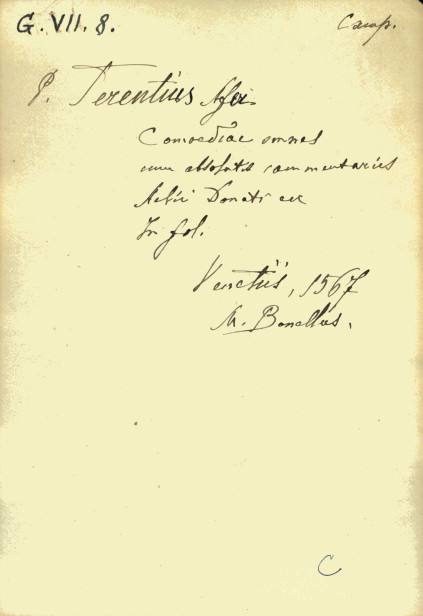 G. VII. 8.
Camp.
P. Terentius Afer
Comoediae omnes
cum absolutis commentariis
Aelii Donati etc
In fol.
Venetiis, 1567
M. Bonellus.
C